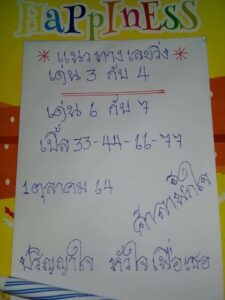 HAPPINESS
* แนวทางเลขวิ่ง *
เด่น 3 กับ 4
เด่น 6 กับ 7
เบิ้ล 33-44-66-77
1 ตุลาคม 64
ปริญญาใจ หัวใจเพื่อเธอ